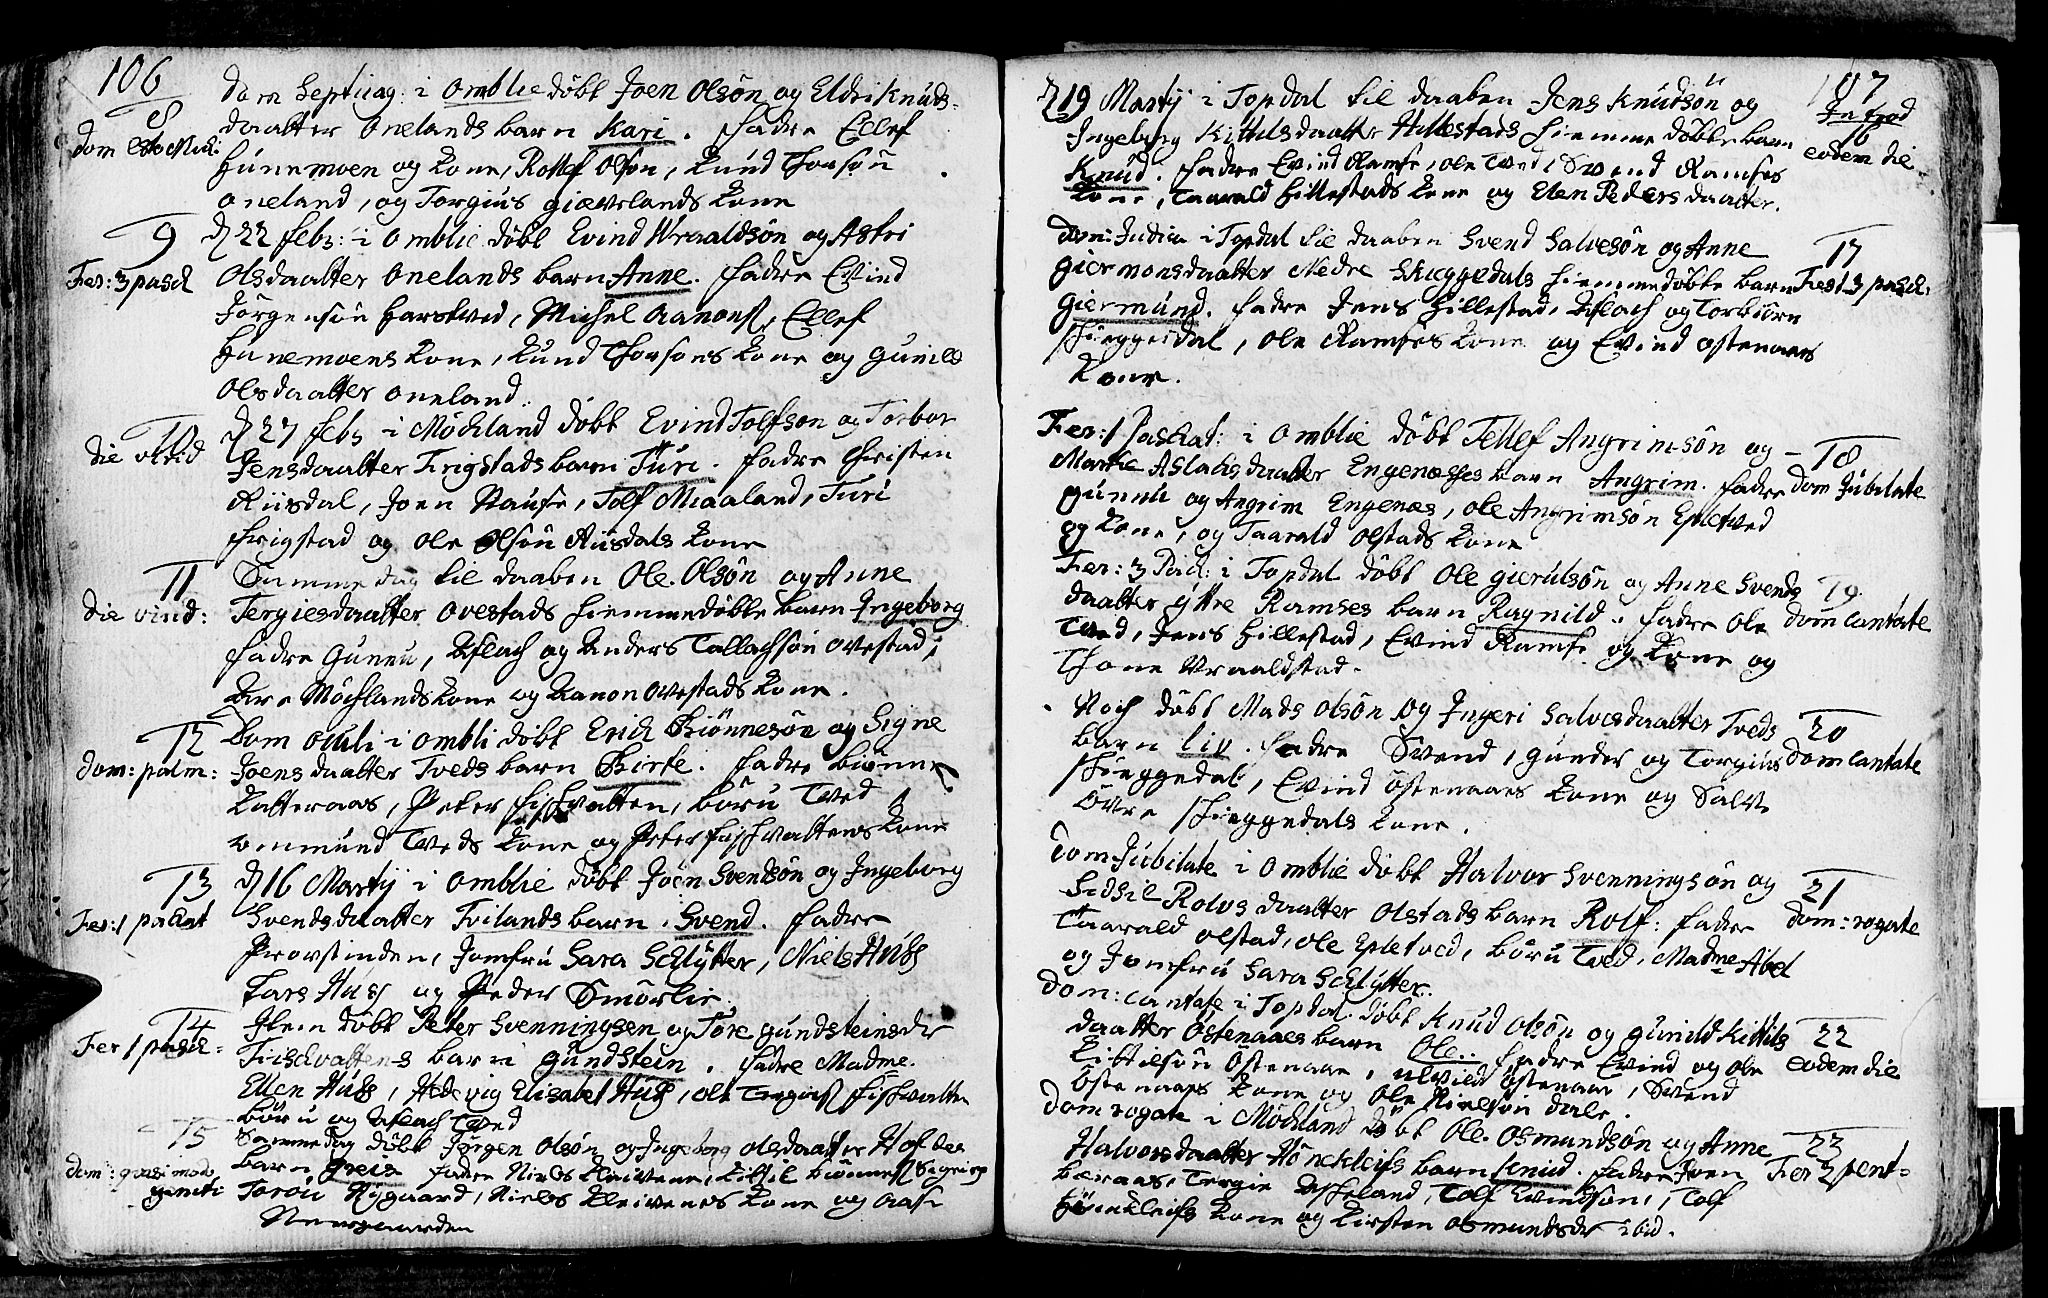 106
8
dom Esto Mihi:
Dom Septuag: i Omblie döbt Joen Olsön og Eldri Knuds-
daatter Onelands barn Kari. Fadre Ellef
Hunemoen og Kone, Rollef Olsön, Knud Thorsön
Oneland, og Torgius Giævelands Kone
9
Fer: 3 pasch
D 22 Febr: i Omblie döbt Evind Wraaldsön og Astri
Olsdaatter Onelands barn Anne. Fadre Evind
Jörgensön Harstved, Michel Aanons, Ellef
Hunemoens Kone, Knud Thorsöns Kone og Gunild
Olsdaatter Oneland.
10
die
D 27 Febr i Möckland döbt Evind Tolfson og Torbor
Jensdaatter Frigstads barn Turi. Fadre Christen
Riisdal, Joen Staufe, Tolf Miaaland, Turi
Frigstad og Ole Olsön Riisdals Kone
11
die vind:
Samme dag til daaben Ole Olsön og Anne
Tergiesdaatter Ovestads Hiemmedöbte barn Ingeborg
Fadre Gunnu, Aslach og Anders Tallachsön Ovestad,
Möcklands Kone og Aanon Ovestads Kone.
12
dom: palm:
Dom Oculi i Ombli döbt Erick Biönnesön og Signe
Joensdaatter Tveds barn Birte. Fadre Biönne
Katteraas, Peter Fischvatten, Böru Tved
Ommund Tveds Kone og Peter Fischvattens Kone
13
Fer: 1 paschat
D 16 Martij i Omblie döbt Joen Svendsön og Ingeborg
Svendsdaatter Tvilands barn Svend. Fadre
Provstinden, Jomfru Sara Schlytter, Niels Huss
Lars Huss og Peder Smörlie.
14
Fer 1 pasch:
Item döbt Peter Svenningsen og Tore Gundsteinsdr
Fischvattens barn Gundstein. Fadre Madme.
Ellen Huss, Hedevig Elisabet Huss, Ole Tergius Fischvatten
Böru og Aslach Tved
15
dom: quasi modo
geniti
Samme dag döbt Jörgen Olsön og Ingeborg Olsdaatter
barn Greis Fadre Niels Kleivene, Kittil
Torou Nygaard, Niels Kleivenes Kone og Aase
107
Introd
16
eodem die
D 19 Martij i Topdal til daaben Jens Knudsön og
Ingeborg Kittilsdaatter Hillestads Hiemmedöbte barn
Knud. Fadre Evind Ramse, Ole Tved, Svend Ramses
Kone, Taarald Hillestads Kone og Elen Pedersdaatter.
17
Fest 3 pasch:
Dom: Judica i Topdal til daaben Svend Salvesön og Anne
Giermonsdaatter Nedre Skieggedals Hiemmedöbte barn
Giermund. Fadre Jens Hillestad, Aslach og Torbiörn
Skieggedal, Ole Ramses Kone og Evind Östenaaes
Kone.
18
dom Jubilate
Fer: 1 Paschat: i Omblie döbt Tellef Angrimsön og
Marte Aslaksdaatter Engenæsses barn Angrim. Fadre
Gunnu og Angrim Engenæs, Ole Angrimsön Epletved
og Kone, og Taarald Olstads Kone
19
dom Cantate
Fer: 3 Pasch: i Topdal döbt Ole Gierulsön og Anne Svends
daatter Yttre Ramses barn Ragnild. Fadre Ole
Tved, Jens Hillestad, Evind Ramse og Kone og
Thone Vraaldstad.
20
dom Cantate
Noch döbt Mads Olsön og Ingeri Salvesdaatter Tveds
barn Liv. Fadre Svend, Gunder og Torgius
Skieggedal, Evind Östenaaes Kone og Salve
Övre Skieggedals Kone.
21
dom: rogate
Dom Jubilate i Omblie döbt Halvor Svenningsön og
Sidsil Rolvsdaatter Olstads barn Rolf: Fadre
Taarald Olstad, Ole Epletved, Böru Tved, Madme Abel
og Jomfru Sara Schlytter.
22
eodem die
Dom: Cantate i Topdal döbt Knud Olsön og Gunild Kittils
daatter Östenaaes barn Ole. Fadre Evind og Ole
Kittilsön Östenaae, Östenaae, Svend
Östenaaes Kone og Ole Nielsön Dale.
23
Fer 2 pent:
Dom rogate i Möckland döbt Ole Osmundsön og Anne
Halvorsdaatter Hönekleifs barn Knud. Fadre Joen
Beraas, Tergie Askeland, Tolf Evindsön, Tolf
Hönekleifs Kone og Kirsten Osmundsdr ibid.